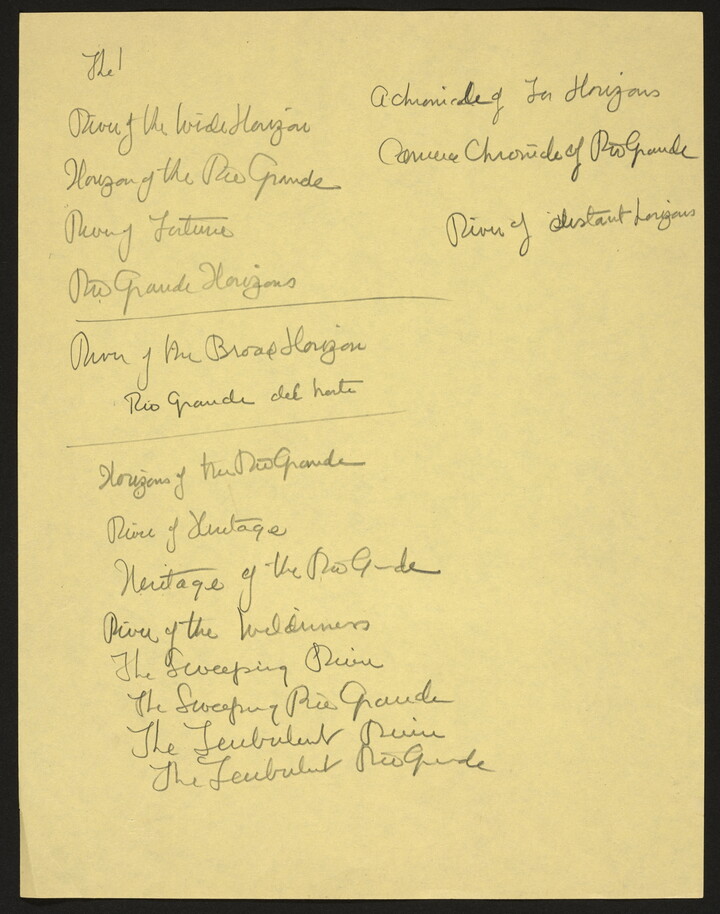 The!
River of the Wide Horizon
Horizon of the Rio Grande
River of Fortune
Rio Grande Horizons
River of the Broad Horizon
Rio Grande del Norte
Horizons of the Rio Grande
River of Heritage
Heritage of the Rio Grande
River of the Wilderness
The Sweeping River
The Sweeping Rio Grande
The Turbulent River
The Turbulent Rio Grande
A Chronicle of Far Horizons
Camera Chronicle of Rio Grande
River of distant horizons